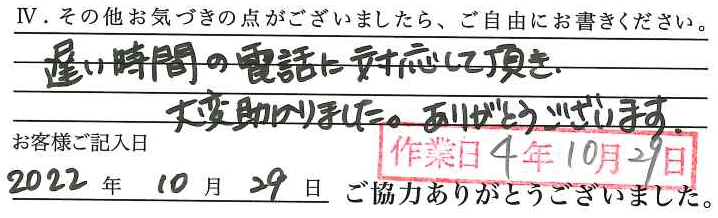 Ⅳ．その他お気づきの点がございましたら、ご自由にお書きください。
遅い時間の電話に対応して頂き、
大変助かりました。ありがとうございます。
お客様ご記入日
作業日 4年10月29日
2022 年 10 月 29 日 ご協力ありがとうございました。